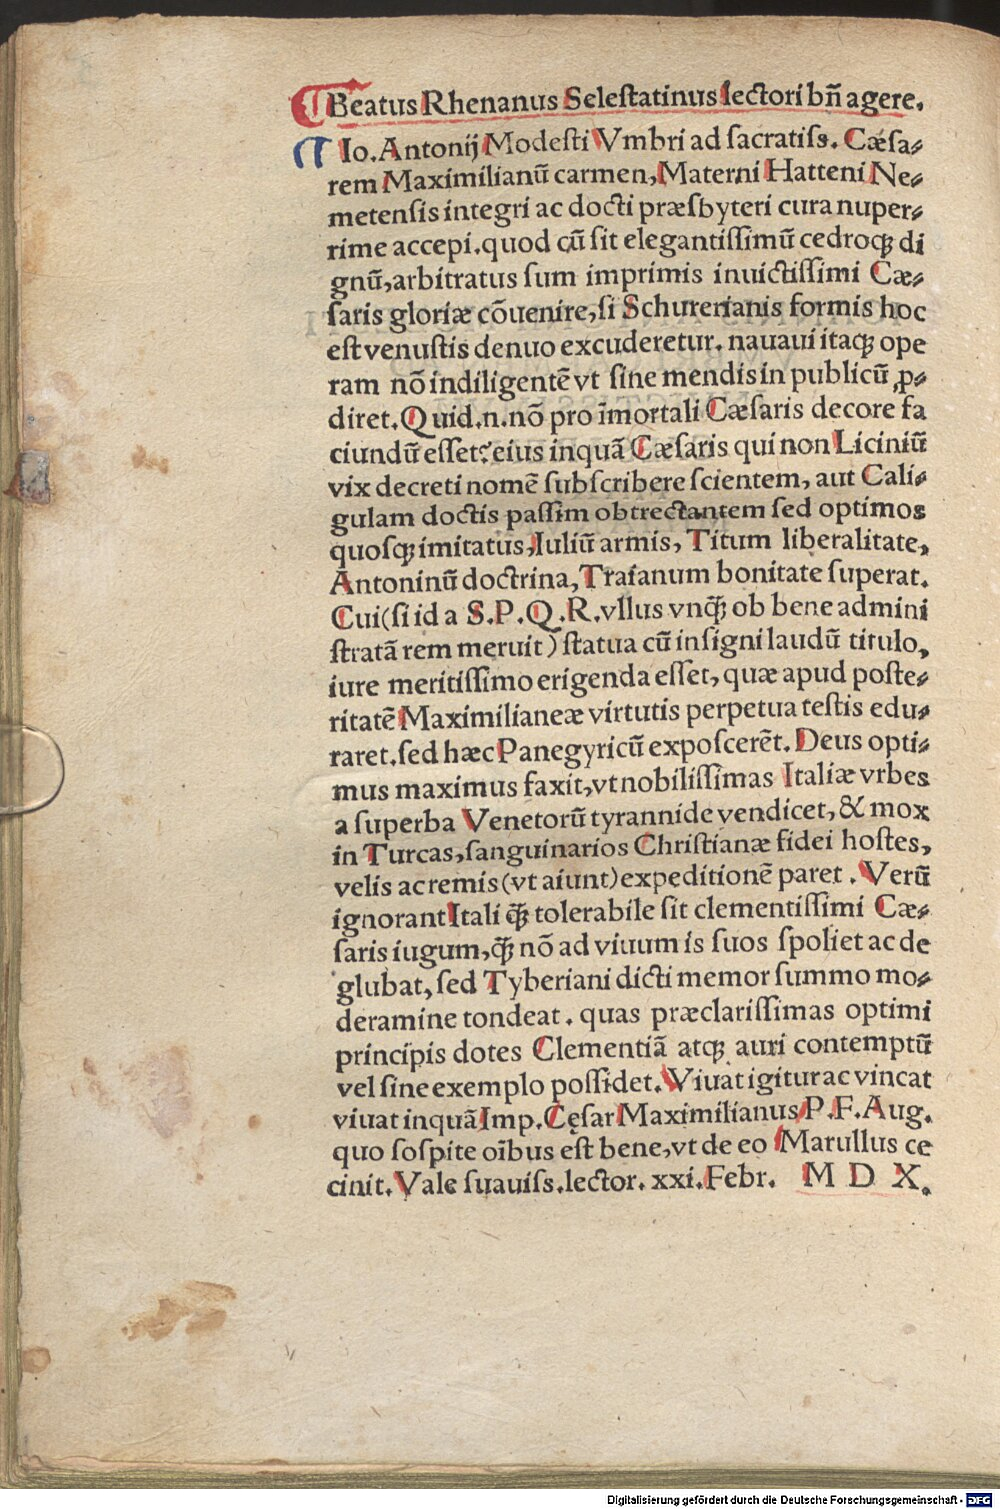 Beatus Rhenanus Selestatinus lectori bñ agere.
Io. Antonij Modesti Vmbri ad sacratiss. Cæsa⸗
rem Maximilianū carmen, Materni Hatteni Ne⸗
metensis integri ac docti præsbyteri cura nuper⸗
rime accepi. quod cū sit elegantissimū cedroqꝫ di
gnū, arbitratus sum imprimis inuictissimi Cæ⸗
saris gloriæ cōuenire, si Schurerianis formis hoc
est venustis denuo excuderetur. nauaui itaqꝫ ope
ram nō indiligentē vt sine mendis in publicū ꝓ⸗
diret. Quid.n.nō pro īmortali Cæsaris decore fa
ciundū esset? eius inquā Cæsaris qui non Liciniū
vix decreti nomē subscribere scientem, aut Cali⸗
gulam doctis passim obtrectantem sed optimos
quosqꝫ imitatus, Iuliū armis, Titum liberalitate,
Antoninū doctrina, Traianum bonitate superat.
Cui (si id a S.P.Q.R. vllus vnqꝫ̄ ob bene admini
stratā rem meruit) statua cū insigni laudū titulo,
iure meritissimo erigenda esset, quæ apud poste⸗
ritatē Maximilianeæ virtutis perpetua testis edu⸗
raret. sed hæc Panegyricū exposcerēt. Deus opti⸗
mus maximus faxit, vt nobilissimas Italiæ vrbes
a superba Venetorū tyrannide vendicet, & mox
in Turcas, sanguinarios Christianæ fidei hostes,
velis ac remis (vt aiunt) expeditionē paret. Verū
ignorant Itali qꝫ̄ tolerabile sit clementissimi Cæ⸗
saris iugum, qꝫ̄ nō ad viuum is suos spoliet ac de
glubat, sed Tyberiani dicti memor summo mo⸗
deramine tondeat. quas præclarissimas optimi
principis dotes Clementiā atqꝫ auri contemptū
vel sine exemplo possidet. Viuat igitur ac vincat
viuat inquā Imp. Cęsar Maximilianus P.F. Aug.
quo sospite oībus est bene, vt de eo Marullus ce
cinit. Vale suauiss. lector. xxi. Febr. M D X.
Digitalisierung gefördert durch die Deutsche Forschungsgemeinschaft - DFG